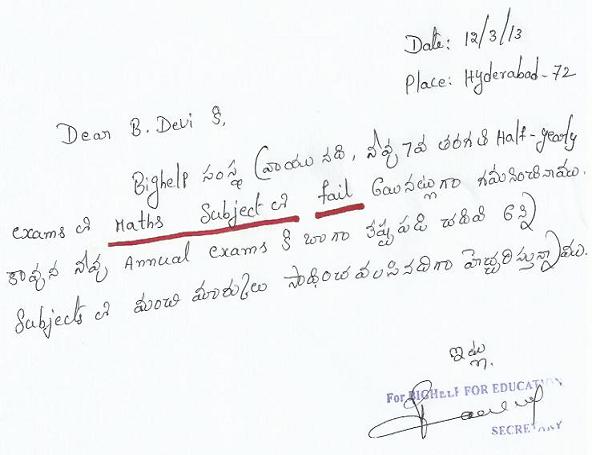 Date: 12/3/13
Place: Hyderabad-72
Dear B. Devi కి,
Bighelp సంస్థ వ్రాయునది, నీవు 7వ తరగతి Half-yearly
exams లో Maths Subject లో fail అయినట్లుగా గమనించినాము.
కావున నీవు Annual exams కి బాగా కష్టపడి చదివి అన్ని
Subjects లో మంచి మార్కులు సాధించవలసినదిగా హెచ్చరిస్తున్నాము.
ఇట్లు
For BIGHELP FOR EDUCATION
SECRETARY